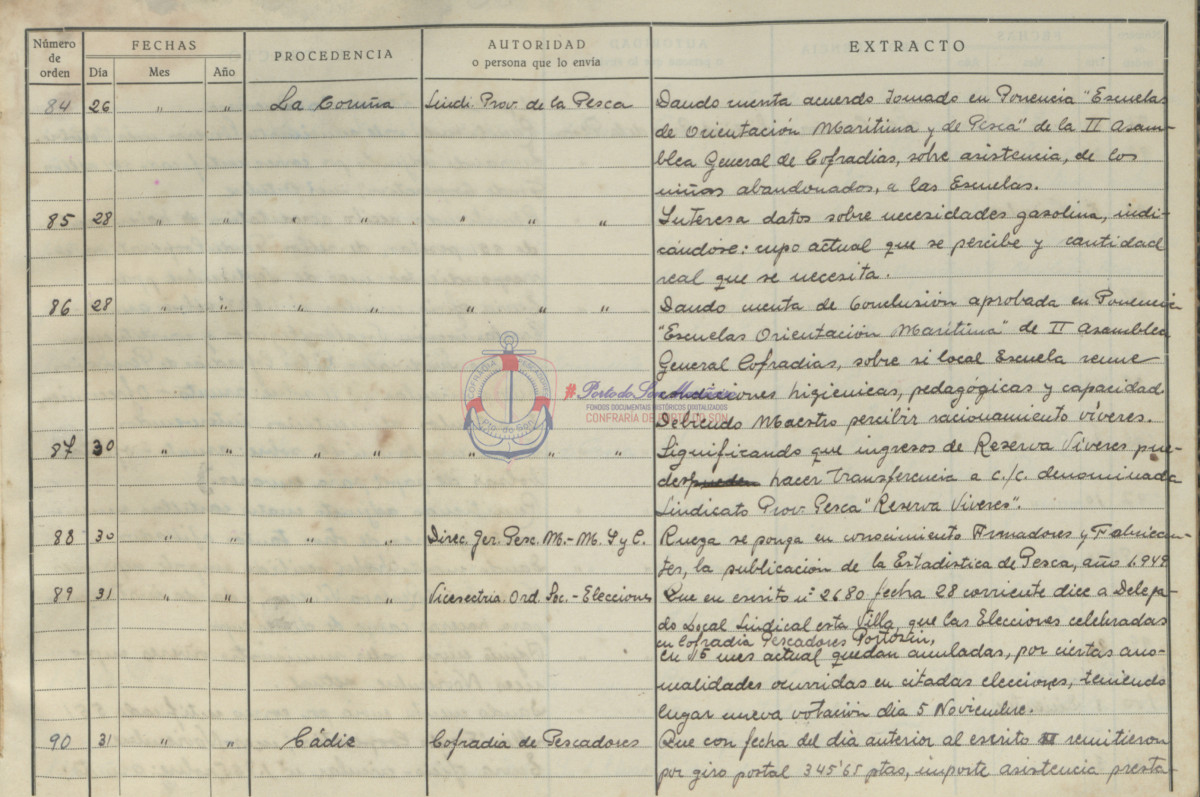 Número de orden FECHAS PROCEDENCIA AUTORIDAD o persona que lo envía EXTRACTO
Dia Mes Año
84 26 " " La Coruña Sindi. Prov. de la Pesca Dando cuenta acuerdo tomado en Ponencia "Escuelas
de Orientación Maritima y de Pesca" de la II Asam-
blea General de Cofradias, sobre asistencia, de los
niños abandonados, a las Escuelas.
85 28 " " " " " " " Interesa datos sobre necesidades gasolina, indi-
cándose: cupo actual que se percibe y cantidad
real que se necesita.
86 28 " " " " " " " Dando cuenta de Conclusión aprobada en Ponencia
"Escuelas Orientación Maritima" de II Asamblea
General Cofradias, sobre si local Escuela reune
condiciones higienicas, pedagógicas y capacidad
Debiendo Maestro percibir racionamiento viveres.
87 30 " " " " " " " Significando que ingresos de Reserva Viveres pue-
des pueden hacer transferencia a c./c. denominada
Sindicato Prov. Pesca "Reserva Viveres".
88 30 " " " " Direc. Ger. Pesc. M.-M. S y C. Ruega se ponga en conocimiento Armadores y Fabrican-
tes, la publicación de la Estadistica de Pesca, año 1.949
89 31 " " " " Vicesectria. Ord. Soc.-Elecciones Que en escrito nº 2680 fecha 28 corriente dice a Delega-
do Local Sindical esta Villa, que las Elecciones celebradas
en Cofradia Pescadores Portosin,
en 15 mes actual quedan anuladas, por ciertas ano-
malidades ocurridas en citadas elecciones, teniendo
lugar nueva votación dia 5 Noviembre.
90 31 " " Cádiz Cofradia de Pescadores Que con fecha del dia anterior al escrito remitieron
por giro postal 345'65 ptas, importe asistencia presta-
COFRADÍA PESCADORES
Pto. do Son
#Porto do Son
FONDOS DOCUMENTAIS HISTÓRICOS DIGITALIZADOS
CONFRARÍA DE PORTO DO SON